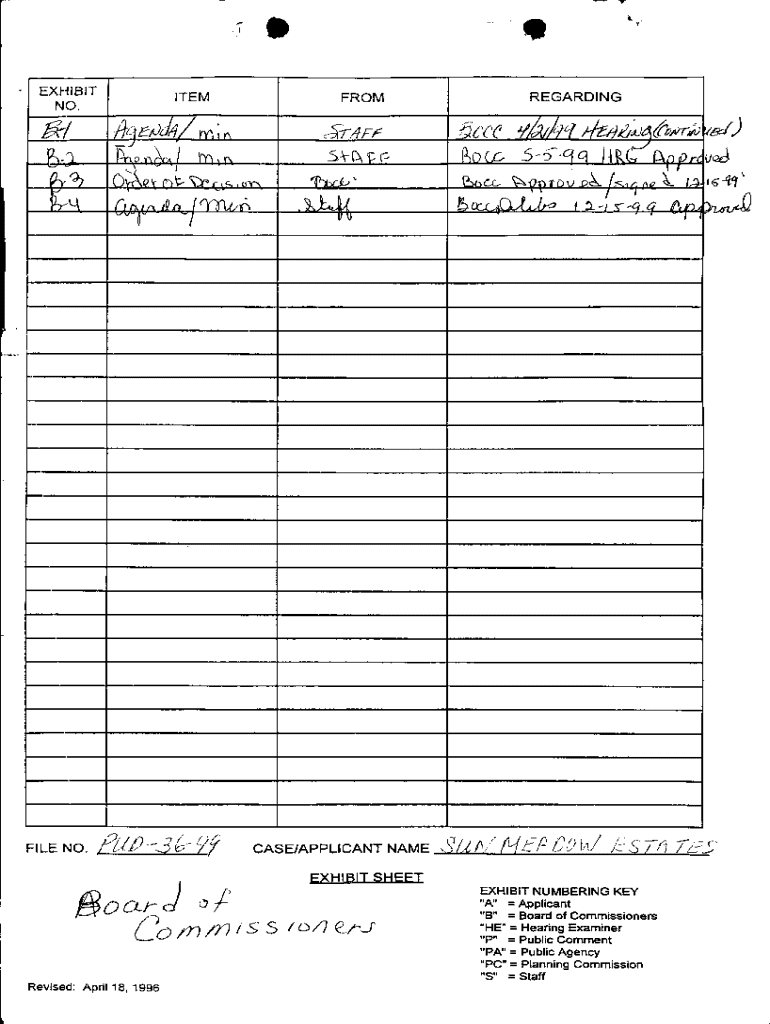 EXHIBIT NO. ITEM FROM REGARDING
B-1 AGENDA/ min STAFF BCCC 4/21/99 HEARING (CONTINUED)
B-2 Agenda/ min STAFF BOCC 5-5-99 HRG Approved
B-3 Order of Decision Bocc Bocc Approved/signed 12-15-99
B-4 agenda/Min Staff Bocc Delibs 12-15-99 approved
FILE NO. PUD-36-99 CASE/APPLICANT NAME SUN MEADOW ESTATES
EXHIBIT SHEET
Board of
Commissioners
EXHIBIT NUMBERING KEY
"A" = Applicant
"B" = Board of Commissioners
"HE" = Hearing Examiner
"P" = Public Comment
"PA" = Public Agency
"PC" = Planning Commission
"S" = Staff
Revised: April 18, 1996